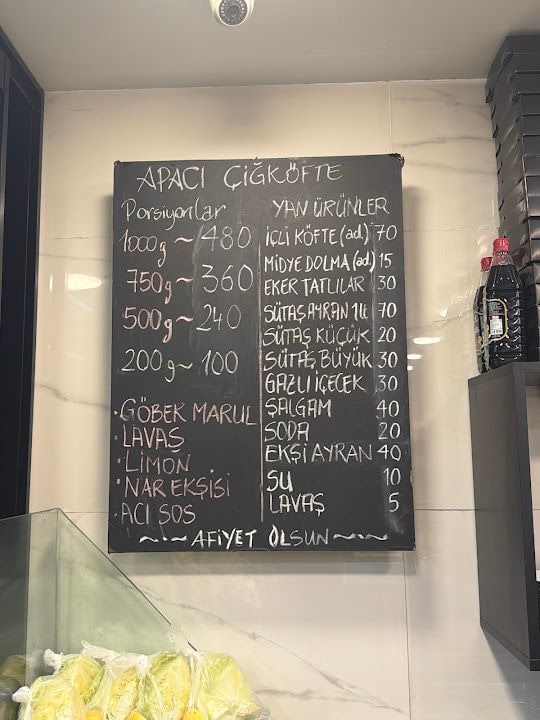 APACI ÇİĞKÖFTE
Porsiyonlar
1000g ~ 480
750g ~ 360
500g ~ 240
200g ~ 100
• GÖBEK MARUL
• LAVAŞ
• LİMON
• NAR EKŞİSİ
• ACI SOS
YAN ÜRÜNLER
İÇLİ KÖFTE (ad.) 70
MİDYE DOLMA (ad.) 15
EKER TATLILAR 30
SÜTAŞ AYRAN 1Lt 70
SÜTAŞ KÜÇÜK 20
SÜTAŞ BÜYÜK 30
GAZLI İÇECEK 30
ŞALGAM 40
SODA 20
EKŞİ AYRAN 40
SU 10
LAVAŞ 5
~·~ AFİYET OLSUN ~·~